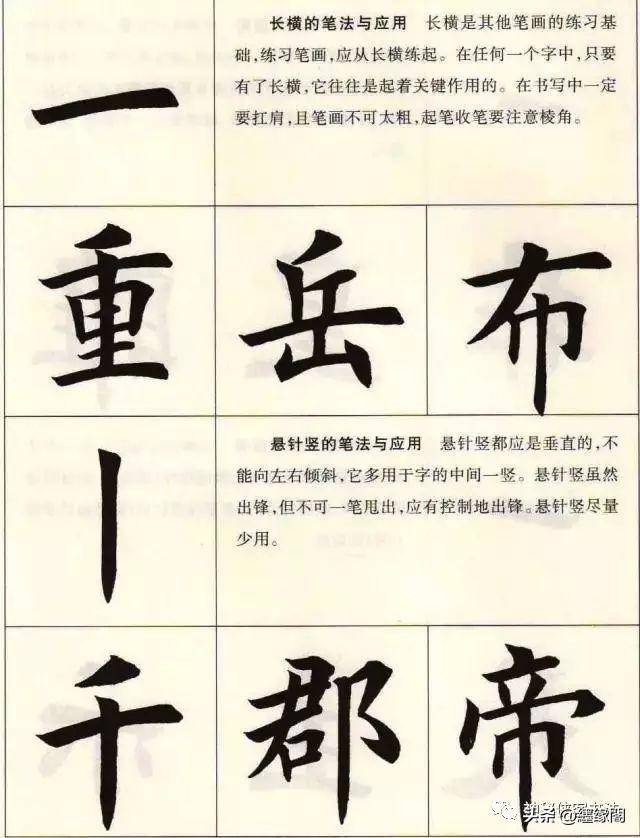 一
长横的笔法与应用 长横是其他笔画的练习基
础,练习笔画,应从长横练起。在任何一个字中,只要
有了长横,它往往是起着关键作用的。在书写中一定
要扛肩,且笔画不可太粗,起笔收笔要注意棱角。
重 岳 布
丨
悬针竖的笔法与应用 悬针竖都应是垂直的,不
能向左右倾斜,它多用于字的中间一竖。悬针竖虽然
出锋,但不可一笔甩出,应有控制地出锋。悬针竖尽量
少用。
千 郡 帝
头条 @缠缘阁